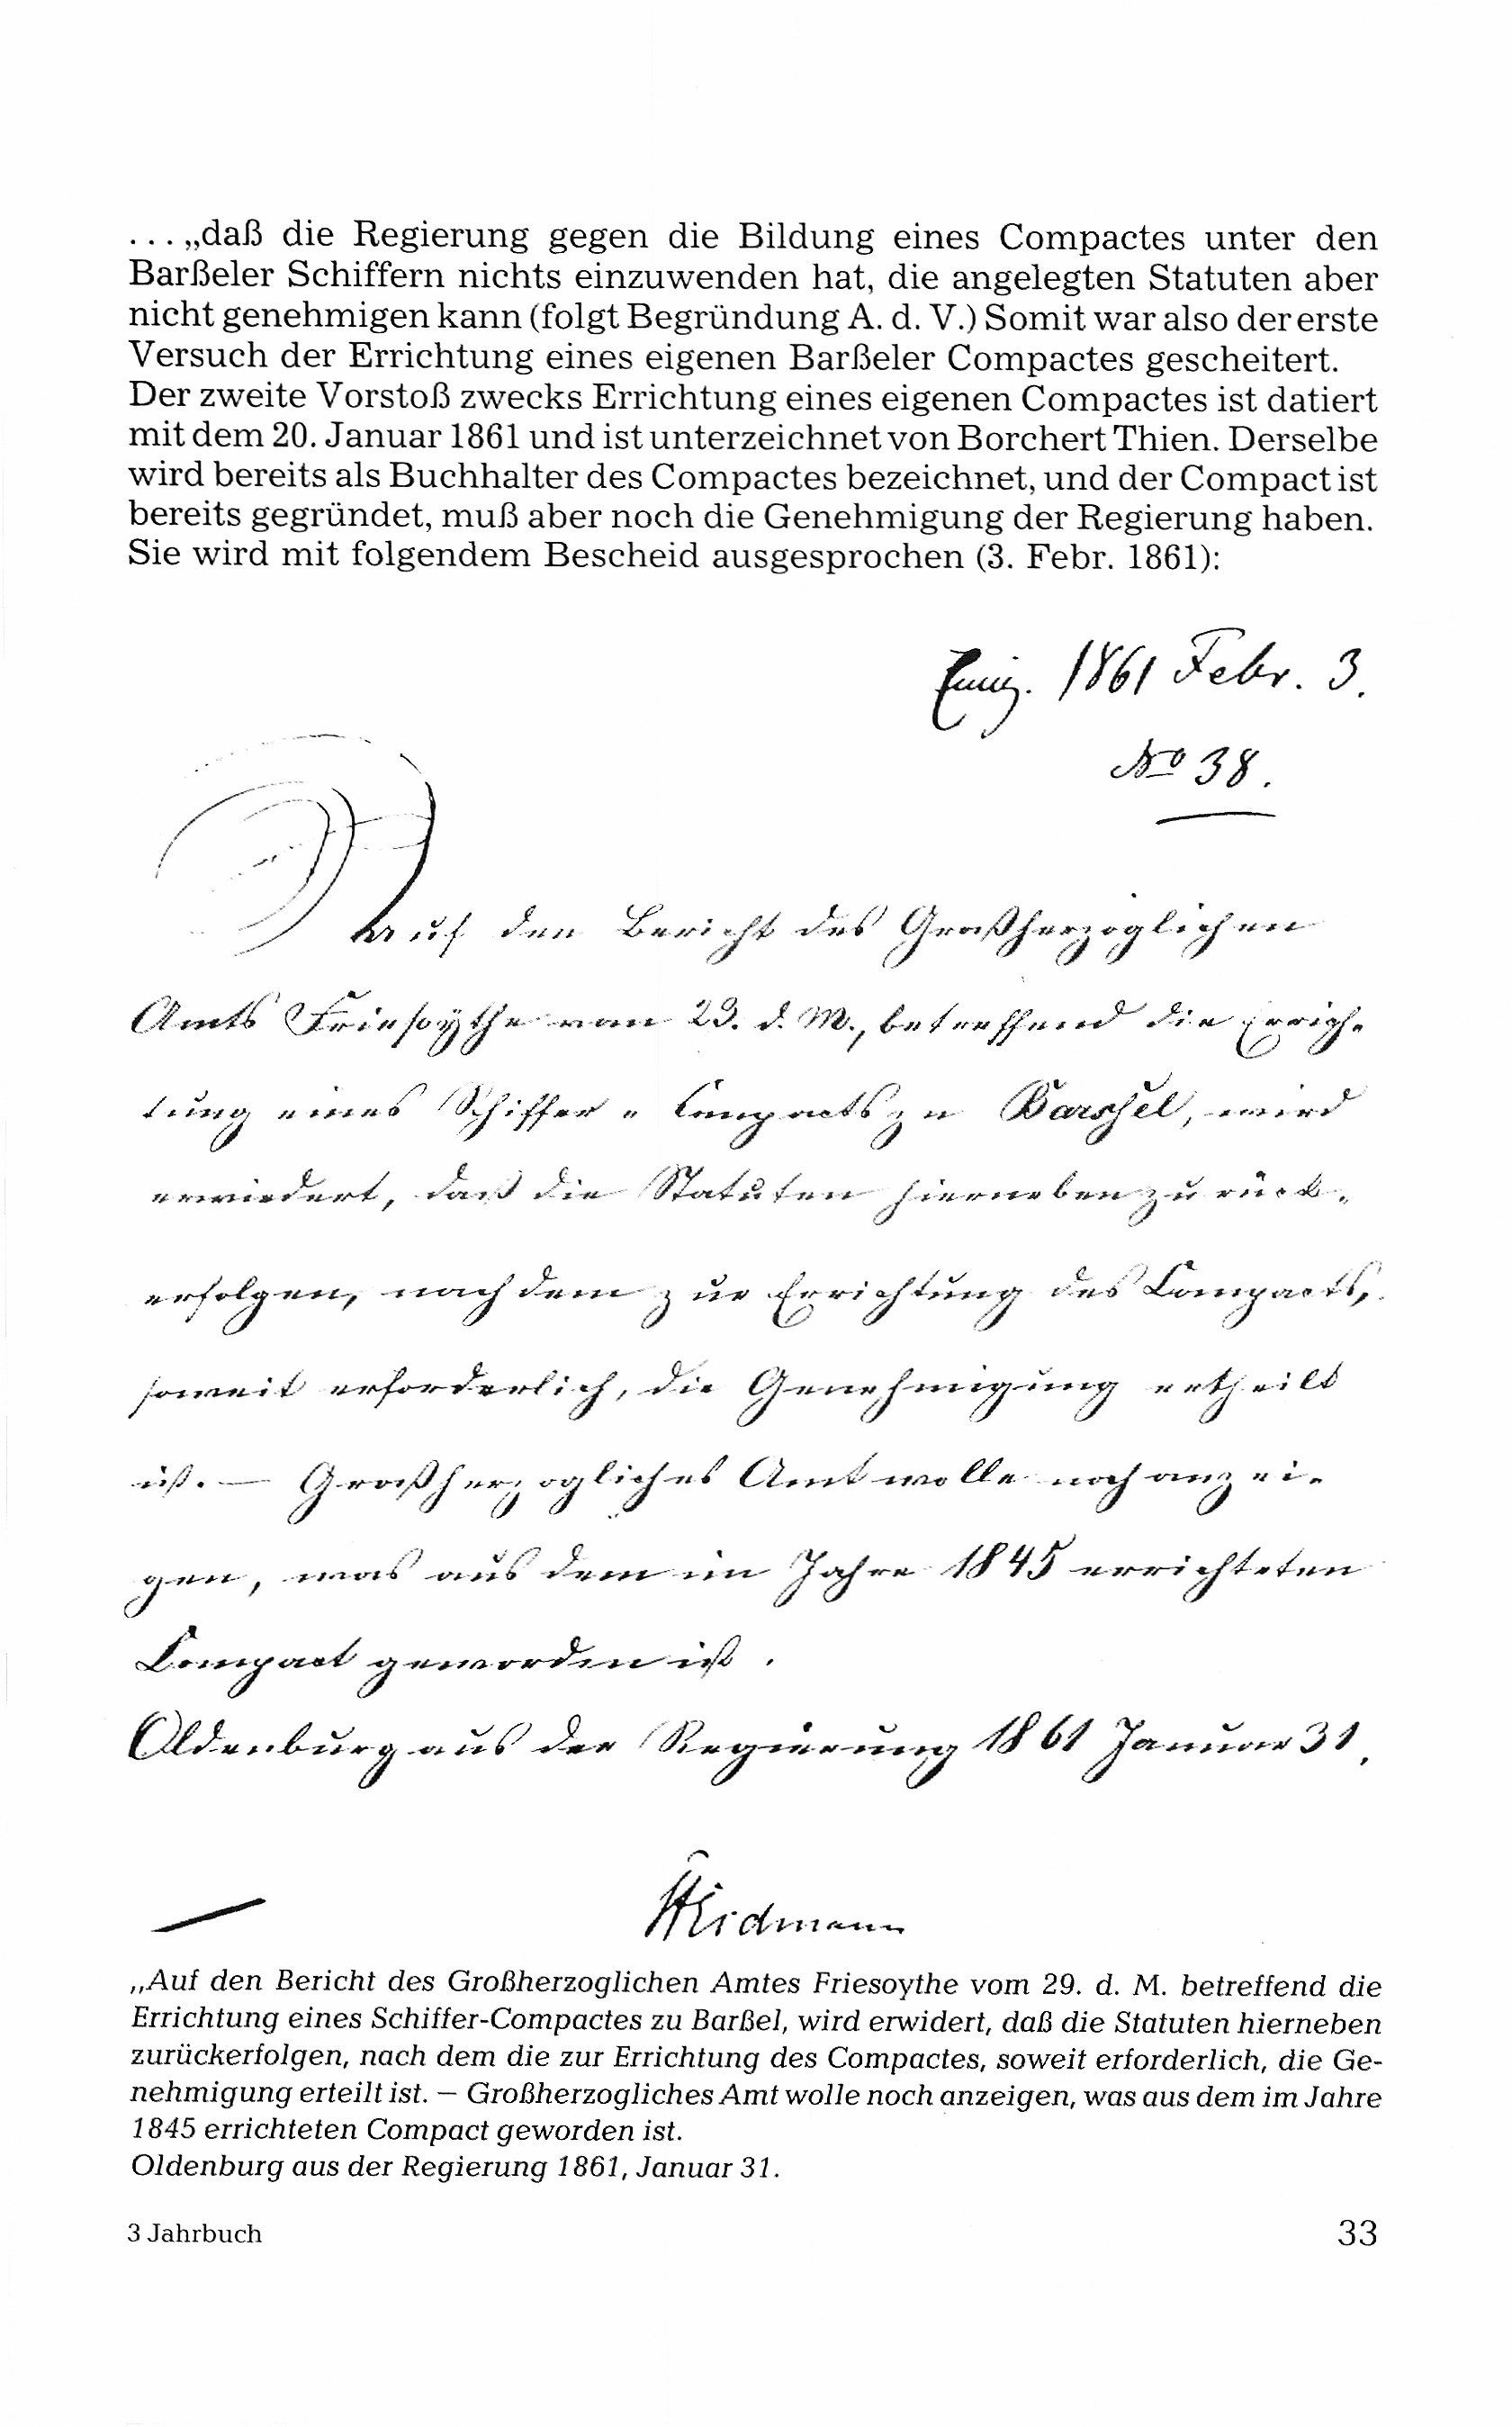 ... „daß die Regierung gegen die Bildung eines Compactes unter den
Barßeler Schiffern nichts einzuwenden hat, die angelegten Statuten aber
nicht genehmigen kann (folgt Begründung A. d. V.) Somit war also der erste
Versuch der Errichtung eines eigenen Barßeler Compactes gescheitert.
Der zweite Vorstoß zwecks Errichtung eines eigenen Compactes ist datiert
mit dem 20. Januar 1861 und ist unterzeichnet von Borchert Thien. Derselbe
wird bereits als Buchhalter des Compactes bezeichnet, und der Compact ist
bereits gegründet, muß aber noch die Genehmigung der Regierung haben.
Sie wird mit folgendem Bescheid ausgesprochen (3. Febr. 1861):
1861 Febr. 3.
No 38.
Auf den Bericht des Großherzoglichen
Amts Friesoythe vom 29. d. M., betreffend die Errich-
tung eines Schiffer-Compacts zu Barssel, wird
erwiedert, daß die Statuten hierneben zurück-
erfolgen, nachdem zur Errichtung des Compacts,
soweit erforderlich, die Genehmigung ertheilt
ist. — Großherzogliches Amt wolle noch anzei-
gen, was aus dem im Jahre 1845 errichteten
Compact geworden ist.
Oldenburg aus der Regierung 1861 Januar 31.
„Auf den Bericht des Großherzoglichen Amtes Friesoythe vom 29. d. M. betreffend die
Errichtung eines Schiffer-Compactes zu Barßel, wird erwidert, daß die Statuten hierneben
zurückerfolgen, nach dem die zur Errichtung des Compactes, soweit erforderlich, die Ge-
nehmigung erteilt ist. — Großherzogliches Amt wolle noch anzeigen, was aus dem im Jahre
1845 errichteten Compact geworden ist.
Oldenburg aus der Regierung 1861, Januar 31.
3 Jahrbuch
33